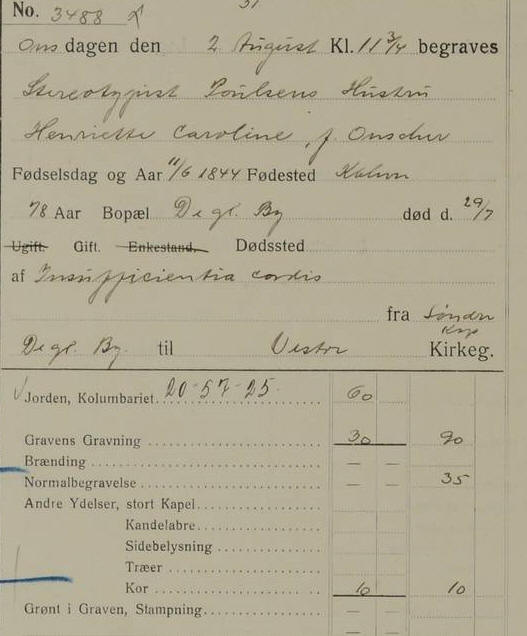 No. 3488
Onsdagen den 2 August Kl. 11 3/4 begraves
Stereotypist Poulsens Hustru
Henriette Caroline, f.
Fødselsdag og Aar 11/6 1844 Fødested Kbhvn
78 Aar Bopæl De gl. By død d. 29/7
Ugift. Gift. Enkestand. Dødssted
af Insufficientia cordis
fra Søndre
Kap
De gl. By. til Vestre Kirkeg.
Jorden, Kolumbariet 20-57-25 60
Gravens Gravning 30 90
Brænding — —
Normalbegravelse — — 35
Andre Ydelser, stort Kapel
Kandelabre
Sidebelysning
Træer
Kor 10 10
Grønt i Graven, Stampning — —